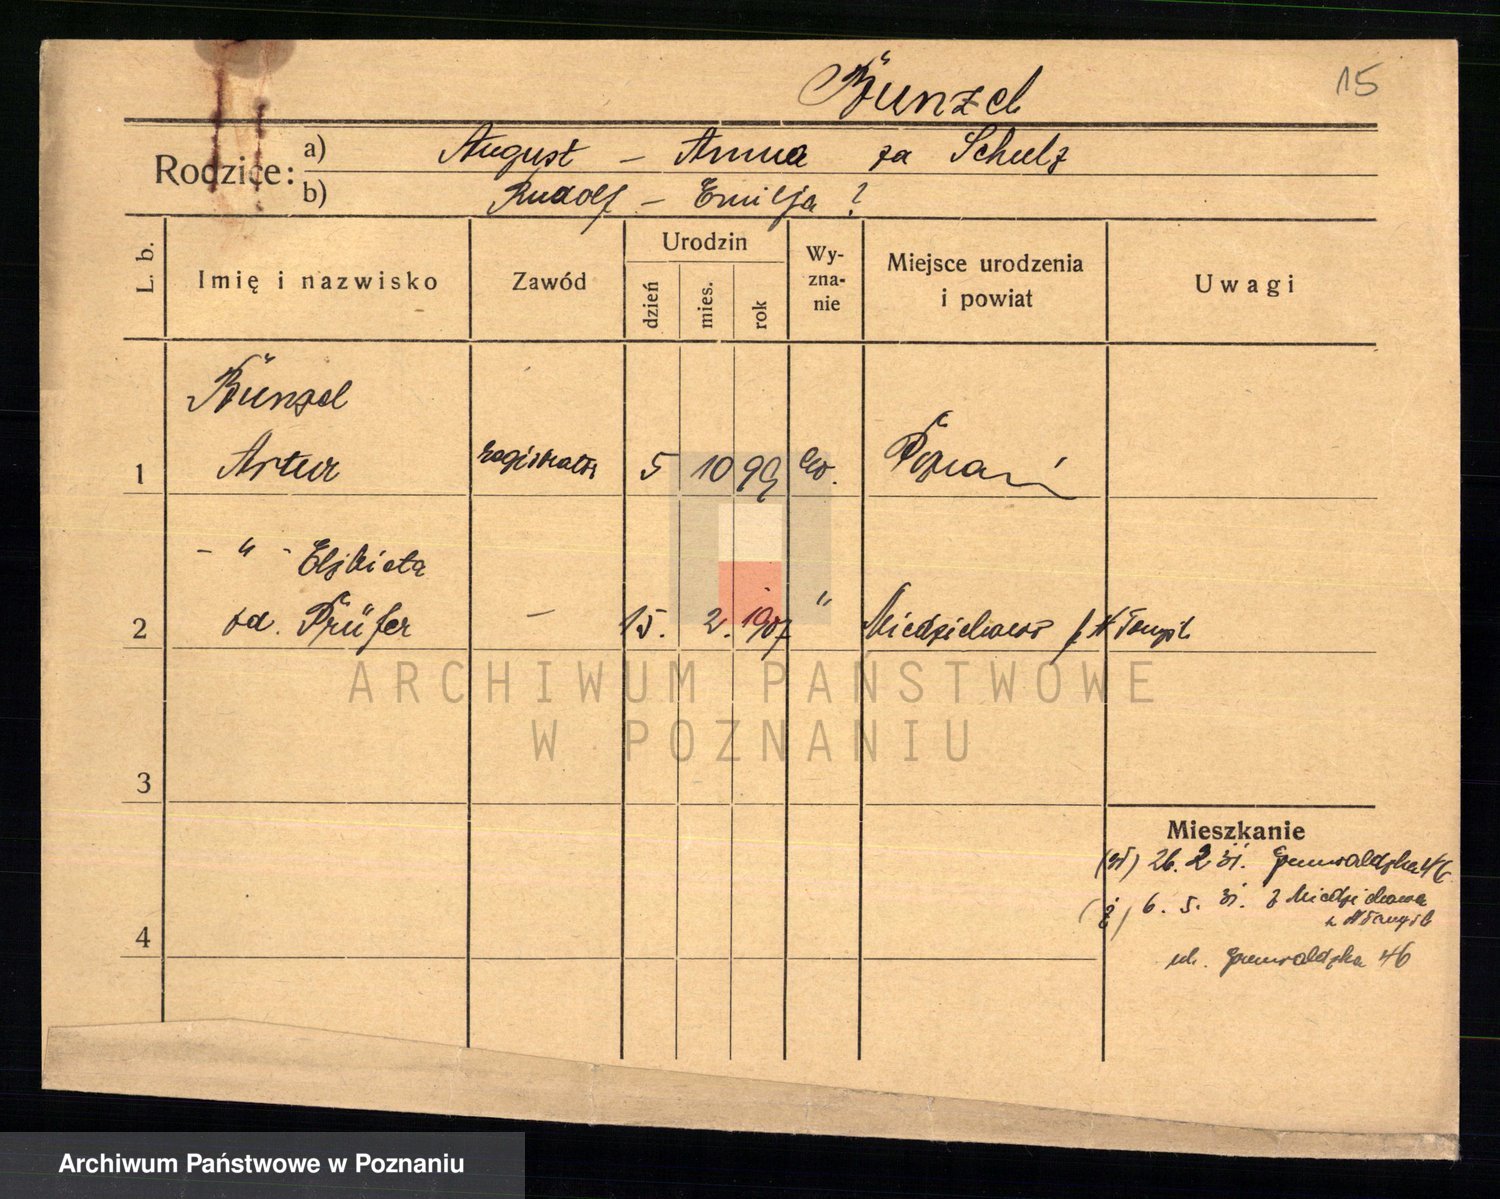 Bünzel 15
Rodzice: a) August – Anna za Schulz
b) Rudolf – Emilja ?
L. b. Imię i nazwisko Zawód Urodzin dzień mies. rok Wy-zna-nie Miejsce urodzenia i powiat Uwagi
Bünzel
1 Artur registrator 5 10 99 ew. Poznań
– " – Elżbieta
2 od. Prüfer – 15. 2. 1907 " Miedzichowo p. N Tomyśl
ARCHIWUM PAŃSTWOWE
W POZNANIU
3
Mieszkanie
26. 2 31. Grunwaldzka 46
(ż) 6. 5. 31. z Miedzichowa
N Tomyśl
4
ul. Grunwaldzka 46
Archiwum Państwowe w Poznaniu